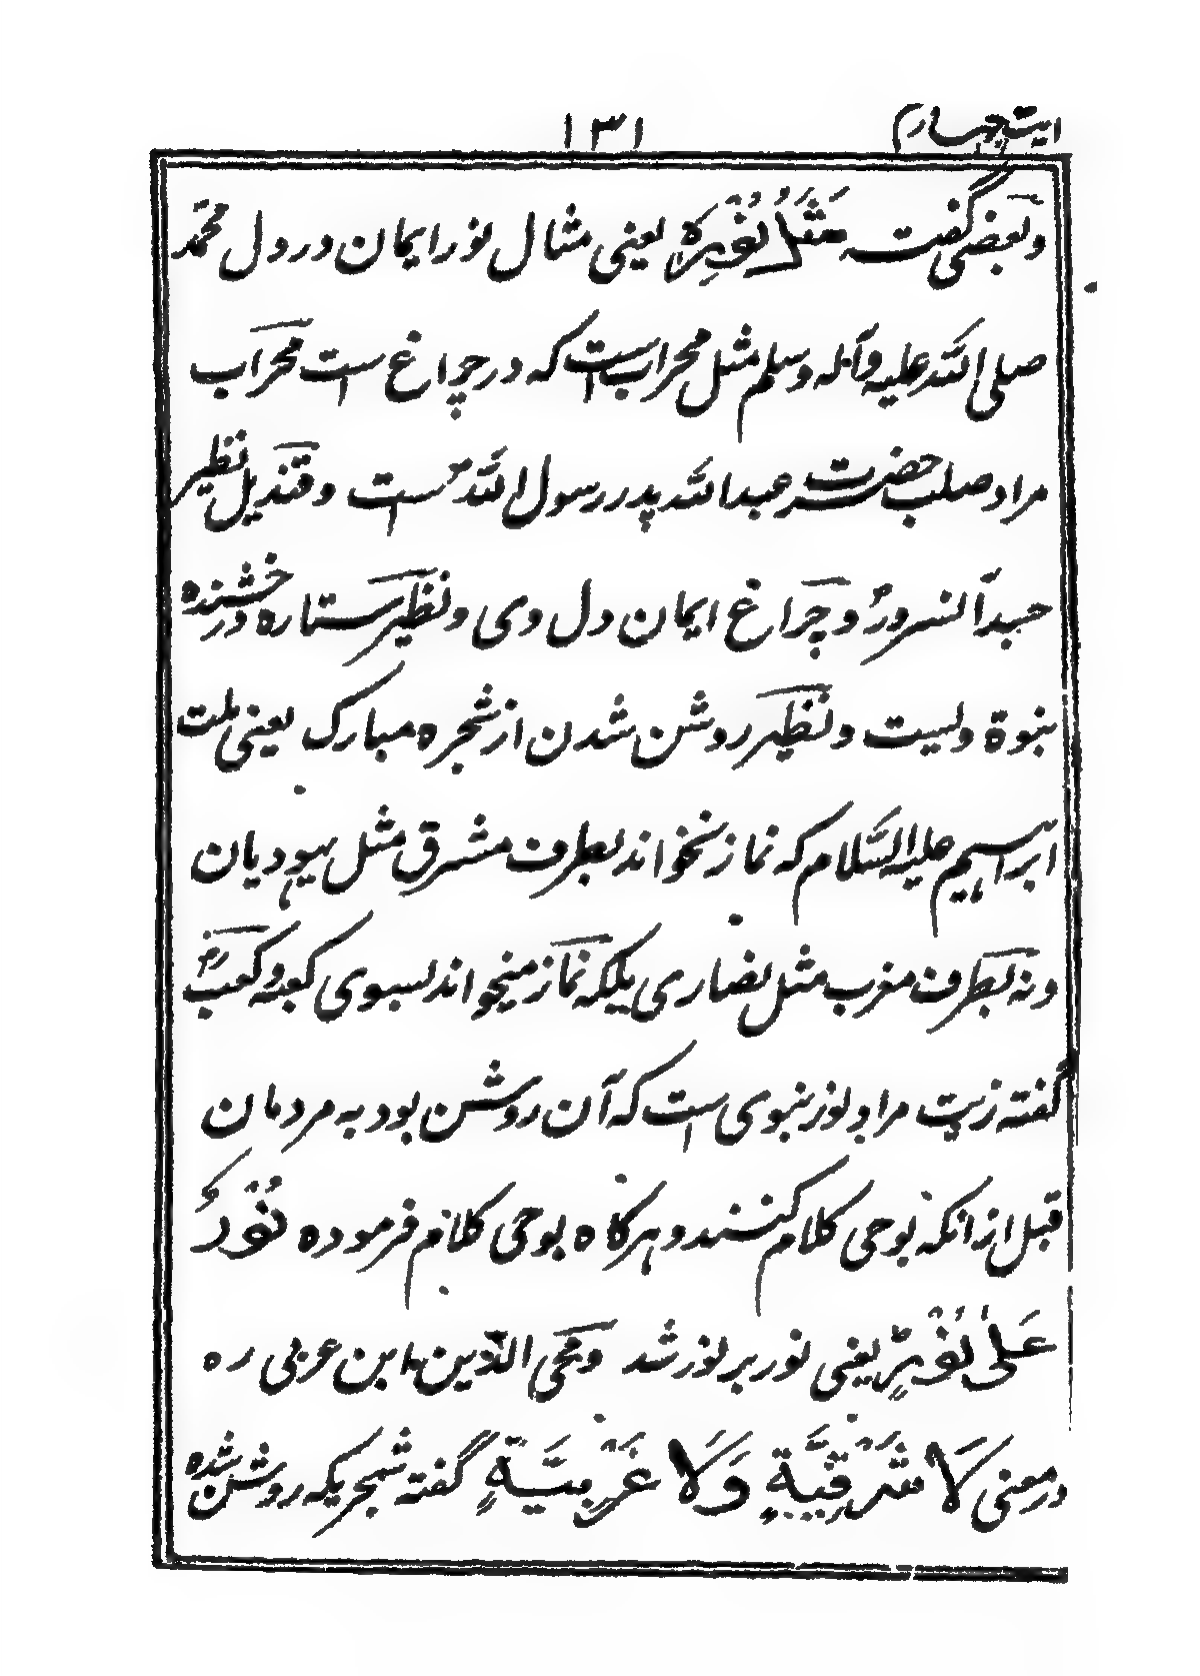 ایت چہارم ۱۳۱
وبعضی گفت مَثَلُ نُوْرِهٖ یعنی مثال نور ایمان در دل محمّد
صلی اللہ علیہ وآلہ وسلم مثل محراب است کہ در چراغ است محراب
مراد صلب حضرت عبداللہ پدر رسول اللہ ست وقندیل نظیر
جسد آنسرور وچراغ ایمان دل وی ونظیر ستارہ درخشندہ
نبوۃ ولیست ونظیر روشن شدن از شجرہ مبارک یعنی ملت
ابراہیم علیہ السّلام کہ نماز نخواند بطرف مشرق مثل یہودیان
ونہ بطرف مغرب مثل نصاری بلکہ نماز میخواند بسوی کعبہ وکعب رض
گفتہ زیت مراد نور نبوی است کہ آن روشن بود بہ مردمان
قبل از انکہ بوحی کلام کنند وہرگاہ بوحی کلام فرمودہ نُوْرٌ
عَلٰی نُوْرٍ یعنی نور بر نور شد ومحی الدّین ابن عربی رہ
در معنی لَا شَرْقِیَّةٍ وَلَا غَرْبِیَّةٍ گفتہ شجریکہ روشن شدہ